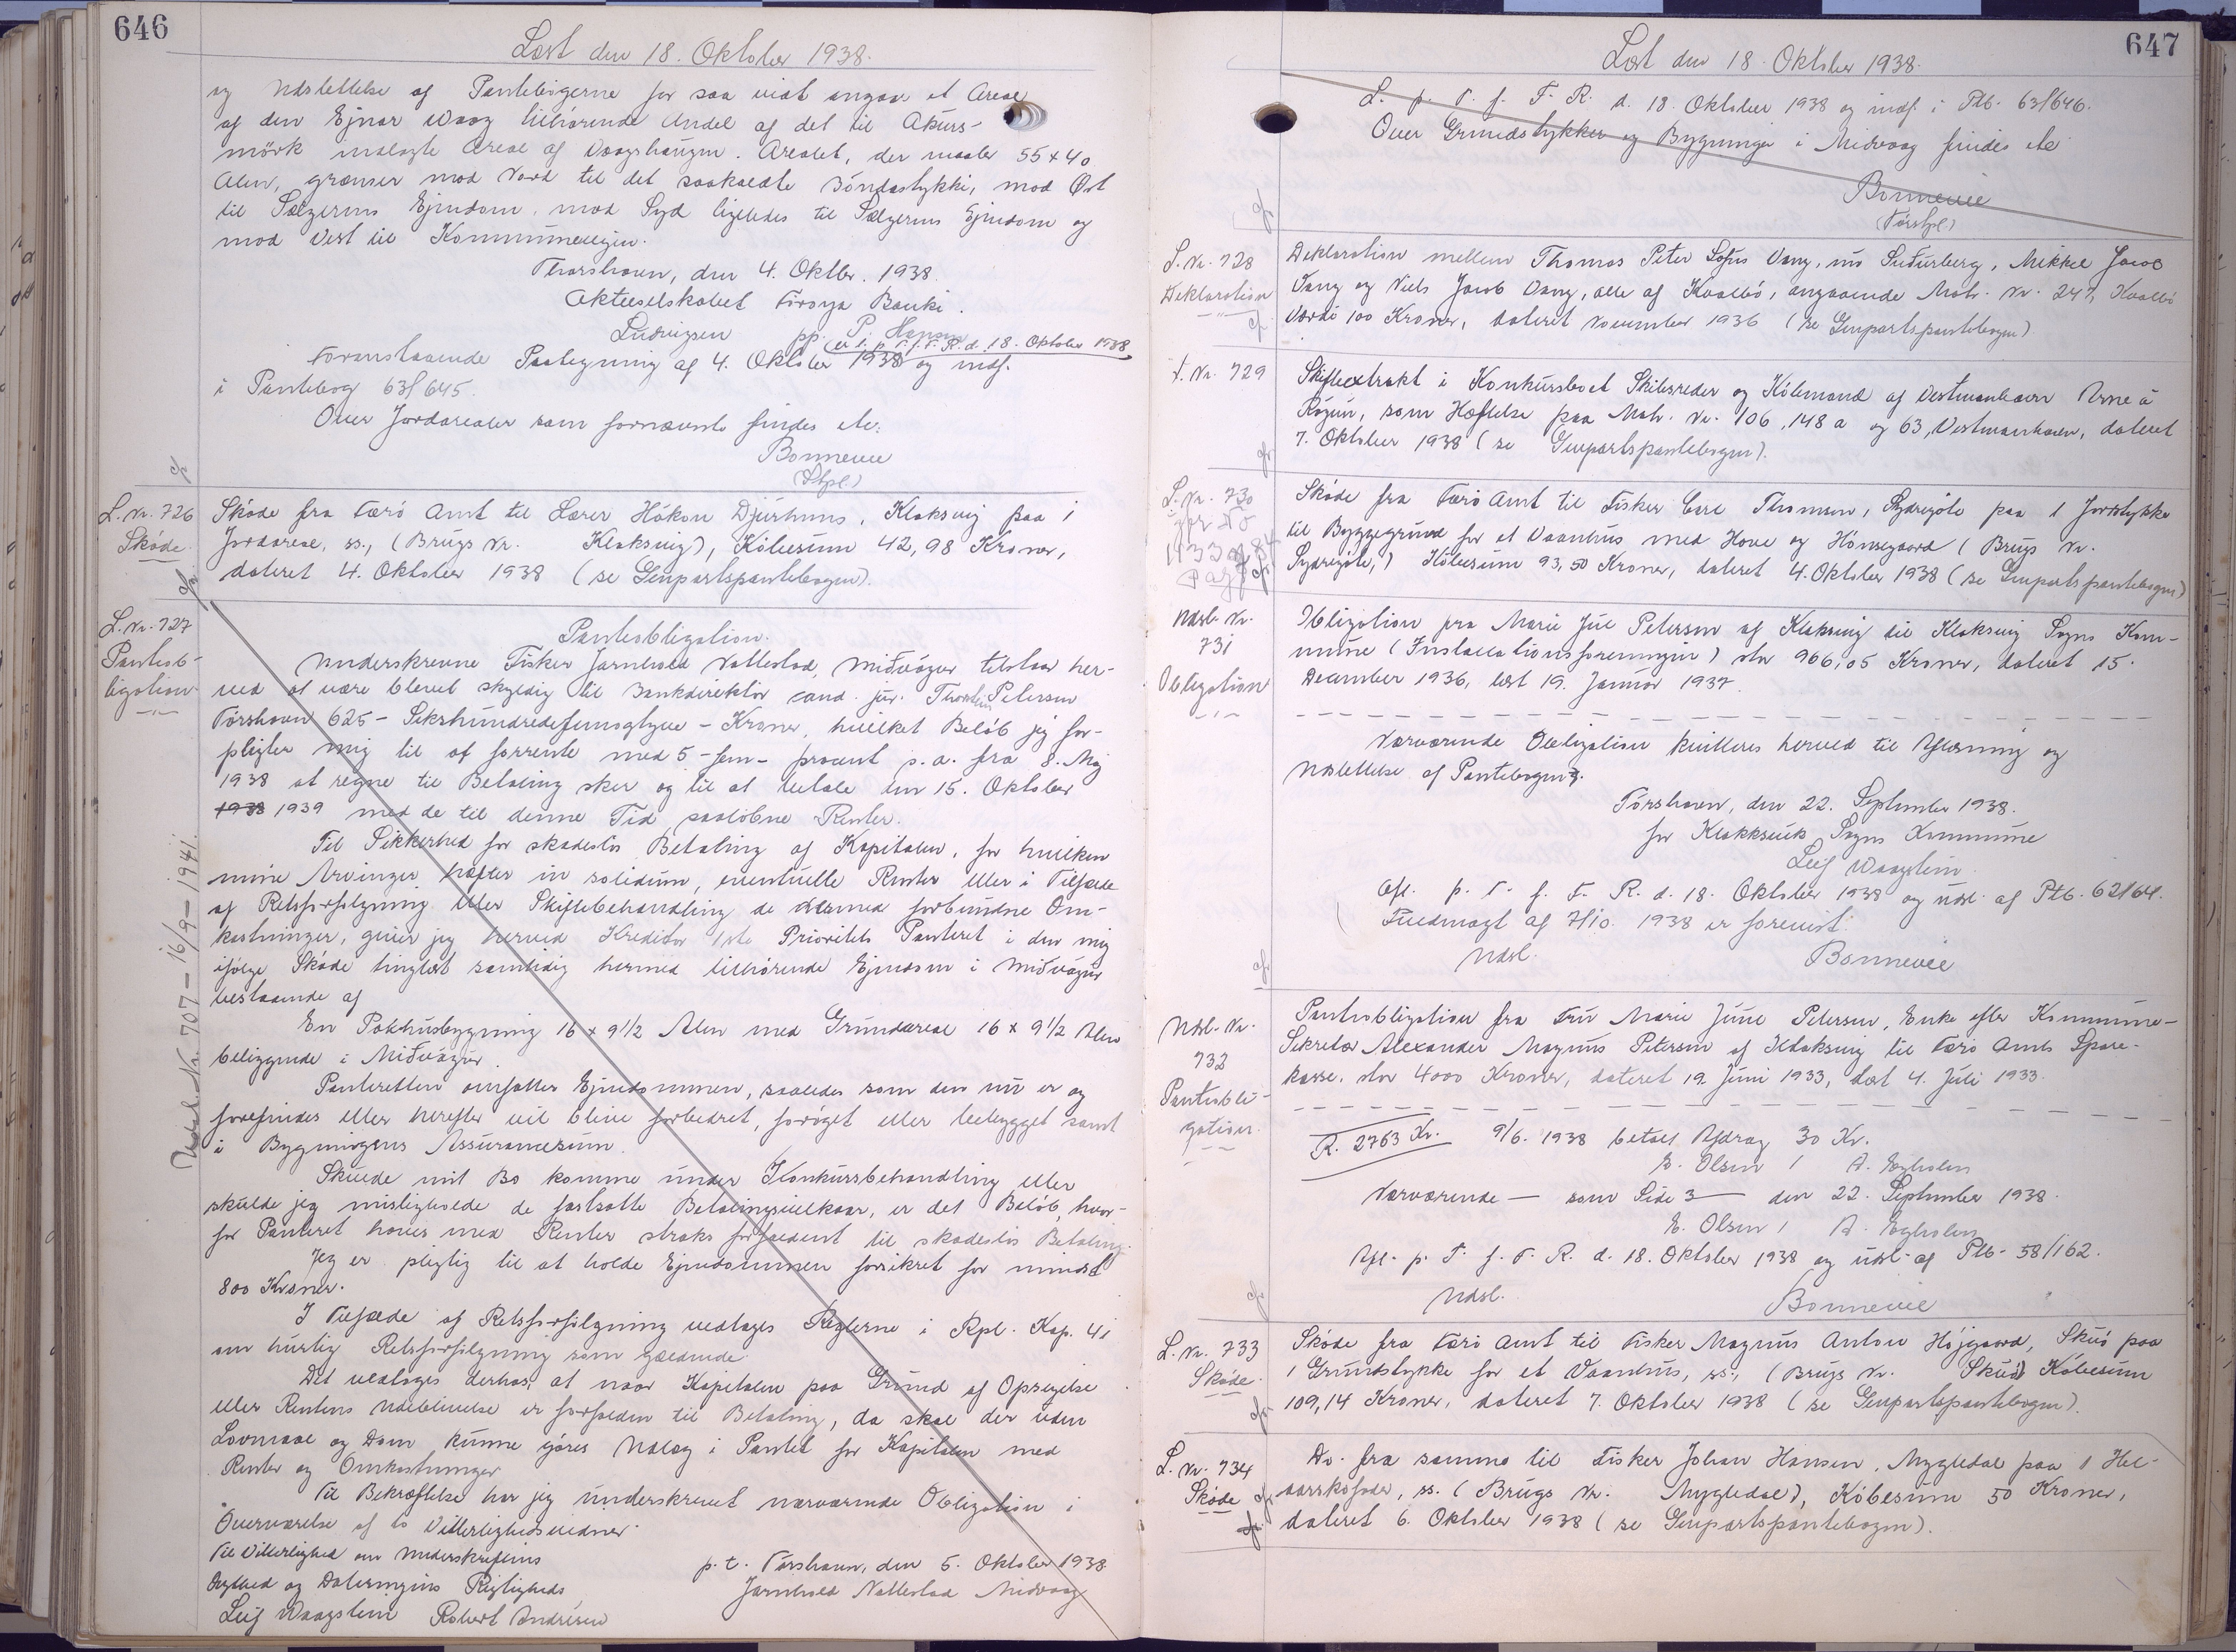 646
Læst den 18. Oktober 1938.
og Udslettelse af Pantebøgerne for saa vidt angaar et Areal
af den Ejnar Waag tilhørende Andel af det til Akurs-
mörk indlagte Areal af Vaagshaugen. Arealet, der maaler 55 x 40
Alen, grænser mod Nord til det saakaldte Bóndastykki, mod Øst
til Sælgerens Ejendom, mod Syd ligeledes til Sælgerens Ejendom og
mod Vest til Kommunevejen.
Thorshavn, den 4. Oktbr. 1938.
Aktieselskabet Føroya Banki.
Ludvigsen pp. P. Hansen
Foranstaaende Paategning af 4. Oktober 1938 er l. p. T. f. F. R. d. 18. Oktober 1938 og indf.
i Pantebog 63/645.
Over Jordarealer som fornævnte findes etc.
Bonnevie
(Stpl.)
L. Nr. 726
Skøde
Skøde fra Færø Amt til Lærer Hákon Djurhuus, Klaksvig paa 1
Jordareal, ss., (Brugs Nr. Klaksvig), Købesum 42,98 Kroner,
dateret 4. Oktober 1938 (se Genpartspantebogen).
L. Nr. 727
Pantob-
ligation
Pantobligation.
Underskrevne Fisker Jarnhold Nattestad, Miðvágur tilstaar her-
ved at være blevet skyldig til Bankdirektør cand. jur. Thorstein Petersen
Tórshavn 625 - Sekshundredefemogtyve - Kroner, hvilket Beløb jeg for-
pligter mig til at forrente med 5 - fem - procent p.a. fra 8. Maj
1938 at regne til Betaling sker og til at betale den 15. Oktober
1938 1939 med de til denne Tid paaløbne Renter.
Til Sikkerhed for skadesløs Betaling af Kapitalen, for hvilken
mine Arvinger hæfter in solidum, eventuelle Renter eller i Tilfælde
af Retsforfølgning eller Skiftebehandling de dermed forbundne Om-
kostninger, giver jeg herved Kreditor 1ste Prioritets Panteret i den mig
ifølge Skøde tinglæst samtidig hermed tilhørende Ejendom i Miðvágur
bestaaende af
En Pakhusbygning 16 x 9 1/2 Alen med Grundareal 16 x 9 1/2 Alen
beliggende i Miðvágur.
Panteretten omfatter Ejendommen, saaledes som den nu er og
forefindes eller herefter vil blive forbedret, forøget eller bebygget samt
i Bygningens Assurancesum.
Skulde mit Bo komme under Konkursbehandling eller
skulde jeg misligholde de fastsatte Betalingsvilkaar, er det Beløb, hvor-
for Panteret haves med Renter straks forfaldent til skadesløs Betaling.
Jeg er pligtig til at holde Ejendommen forsikret for mindst
800 Kroner.
I Tilfælde af Retsforfølgning vedtages Reglerne i Rpl. Kap. 41
om hurtig Retsforfølgning som gældende.
Det vedtages derhos, at naar Kapitalen paa Grund af Opsigelse
eller Rentens Udeblivelse er forfalden til Betaling, da skal der uden
Lovmaal og Dom kunne gøres Udlæg i Pantet for Kapitalen med
Renter og Omkostninger
Til Bekræftelse har jeg underskrevet nærværende Obligation i
Overværelse af to Vitterlighedsvidner.
Til Vitterlighed om Underskriftens
Ægthed og Dateringens Rigtigheds
p. t. Tórshavn, den 5. Oktober 1938
Jarnhold Nattestad Midvaag
Leif Waagstein Robert Andreasen
Udsl. Nr. 707 - 16/9 - 1941.
647
Læst den 18. Oktober 1938.
L. p. T. f. F. R. d. 18. Oktober 1938 og indf. i Ptb. 63/646.
Over Grundstykker og Bygninger i Midvaag findes etc
Bonnevie
(Tórshpl)
L. Nr. 728
Deklaration
Deklaration mellem Thomas Peter Lofus Vang, nú Suðurberg, Mikkel Jacob
Vang og Niels Jacob Vang, alle af Kvalbø, angaaende Matr. Nr. 247, Kvalbø
Værdi 100 Kroner, dateret November 1936 (se Genpartspantebogen)
L. Nr. 729
Skifteextrakt i Konkursboet Skibsreder og Købmand af Vestmanhavn Arne á
Rógvu, som Hæftelse paa Matr. Nr. 106, 148 a og 63, Vestmanhavn, dateret
7. Oktober 1938 (se Genpartspantebogen).
L. Nr. 730
Skøde fra Færø Amt til Fisker Carl Thomsen, Sydregøte paa 1 Jordstykke
til Byggegrund for et Vaanhus med Have og Hønsegaard (Brugs Nr.
Sydregøte,) Købesum 93,50 Kroner, dateret 4. Oktober 1938 (se Genpartspantebogen)
Udsl. Nr.
731
Obligation
Obligation fra Marie Jul Petersen af Klaksvig til Klaksvig Sogns Kom-
mune (Installationsforeningen) stor 966,05 Kroner, dateret 15.
December 1936, læst 19. Januar 1937.
Nærværende Obligation kvitteres herved til Aflæsning og
Udslettelse af Pantebogen.
Tórshavn, den 22. September 1938.
for Klakksvik Sogns Kommune
Leif Waagstein
Afl. p. T. f. F. R. d. 18. Oktober 1938 og udsl. af Ptb. 62/64.
Fuldmagt af 7/10. 1938 er forevist.
Udsl.
Bonnevie
Udsl. Nr.
732
Pantobli-
gation
Pantobligation fra Fru Marie Juul Petersen, Enke efter Kommune-
Sekretær Alexander Magnus Petersen af Klaksvig til Færø Amts Spare-
kasse, stor 4000 Kroner, dateret 19. Juni 1933, læst 4. Juli 1933.
R. 2763 Kr. 9/6. 1938 betalt Afdrag 30 Kr.
E. Olsen / A. Egholm
Nærværende — som Side 3 — den 22. September 1938.
E. Olsen / A. Egholm
Afl. p. T. f. F. R. d. 18. Oktober 1938 og udsl. af Ptb. 58/162.
Udsl.
Bonnevie
L. Nr. 733
Skøde
Skøde fra Færø Amt til Fisker Magnus Anton Højgaard, Skuø paa
1 Grundstykke for et Vaanhus, ss., (Brugs Nr. Skuø) Købesum
109,14 Kroner, dateret 7. Oktober 1938 (se Genpartspantebogen).
L. Nr. 734
Skøde
Do. fra samme til Fisker Johan Hansen, Mygledal paa 1 Hel-
aarskofoder, ss. (Brugs Nr. Mygledal), Købesum 50 Kroner,
dateret 6. Oktober 1938 (se Genpartspantebogen).